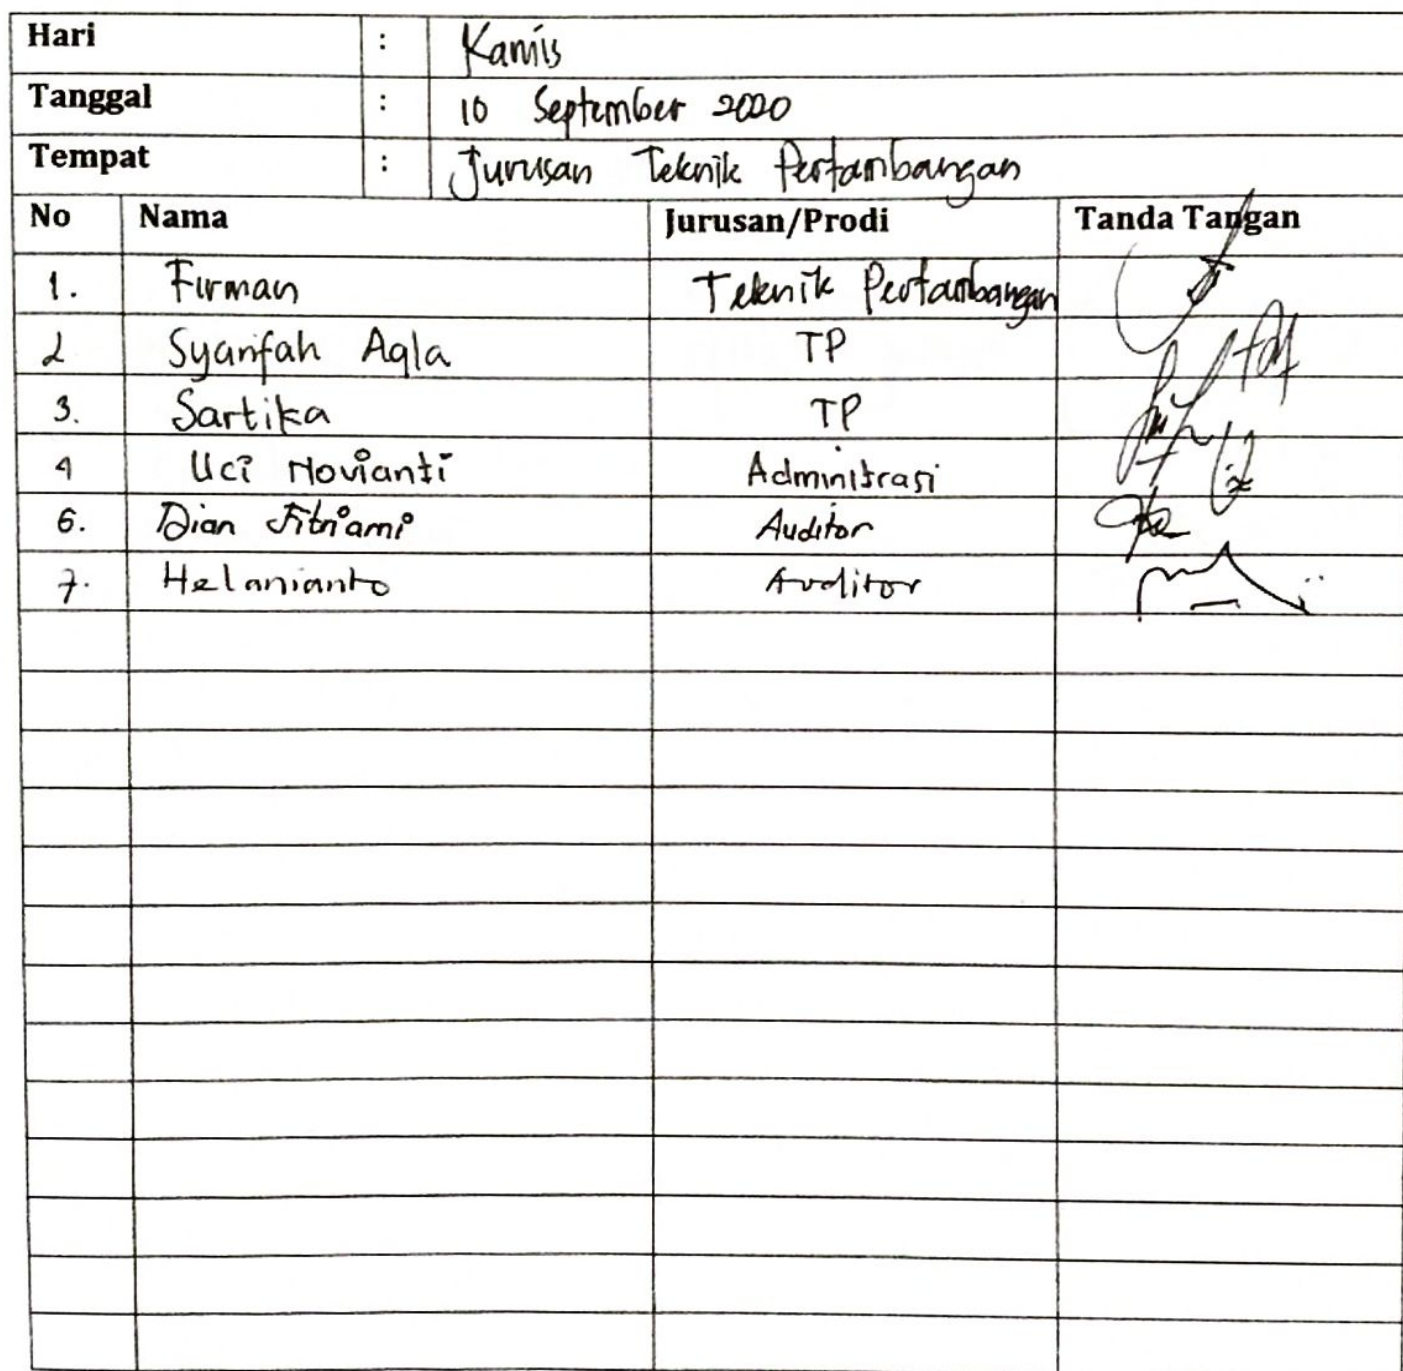 Hari : Kamis
Tanggal : 10 September 2020
Tempat : Jurusan Teknik Pertambangan
No Nama Jurusan/Prodi Tanda Tangan
1. Firman Teknik Pertambangan
2 Syarifah Aqla TP
3. Sartika TP
4 Uci Novianti Adminitrasi
6. Dian Fitriami Auditor
7. Helanianto Auditor